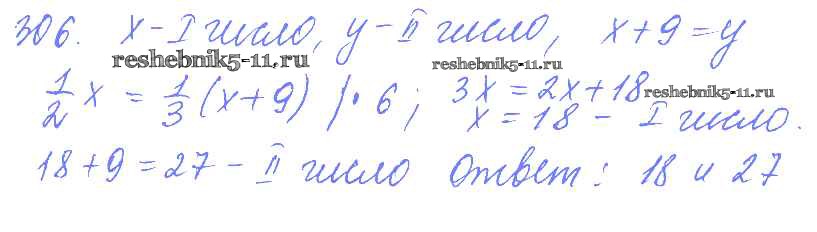 306. x - I число, y - II число, x + 9 = y
reshebnik5-11.ru reshebnik5-11.ru
1/2 x = 1/3 (x + 9) | · 6; 3x = 2x + 18 reshebnik5-11.ru
x = 18 - I число.
18 + 9 = 27 - II число Ответ: 18 и 27